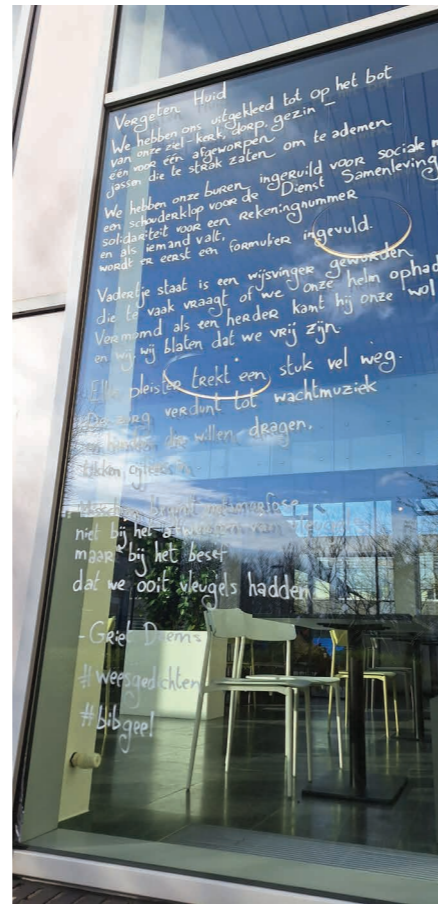 Vergeten Huid
We hebben ons uitgekleed tot op het bot
van onze ziel - kerk, dorp, gezin -
één voor één afgeworpen
jassen die te strak zaten om te ademen
We hebben onze buren ingeruild voor sociale
een schouderklop voor de Dienst Samenleving
solidariteit voor een rekeningnummer
en als iemand valt,
wordt er eerst een formulier ingevuld.
Vadertje staat is een wijsvinger geworden
die te vaak vraagt of we onze helm
Vermomd als een herder kamt hij onze wol
en wij, wij blaten dat we vrij zijn.
Elke pleister trekt een stuk vel weg.
De zorg verdunt tot wachtmuziek
en handen die willen dragen,
tikken cijfers in.
begint metamorfose
niet bij het van
maar bij het besef
dat we ooit vleugels hadden
- Griet
#weesgedichten
#bibgeel